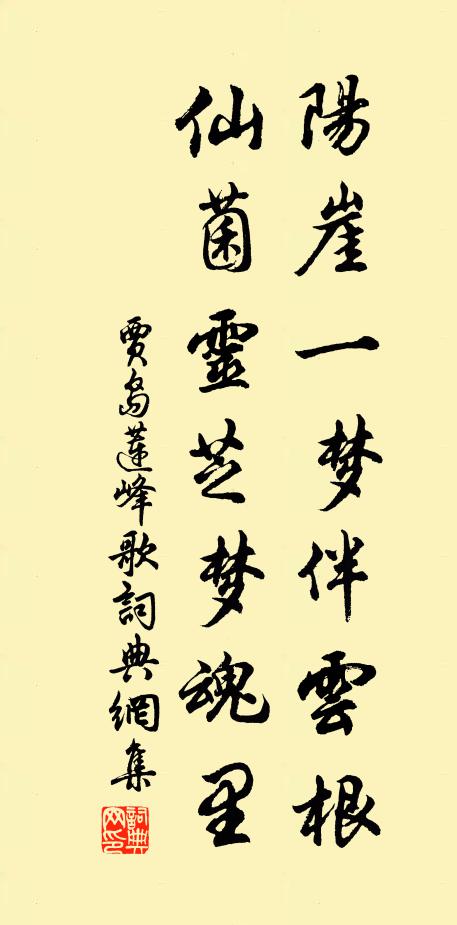 陽崖一梦伴雲根
仙菌靈芝梦魂里
賈島蓮峰歌詞典網集
詞典網印